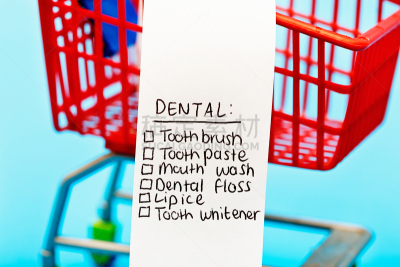 DENTAL:
Toothbrush
Toothpaste
Mouth wash
Dental floss
Lipice
Tooth whitener